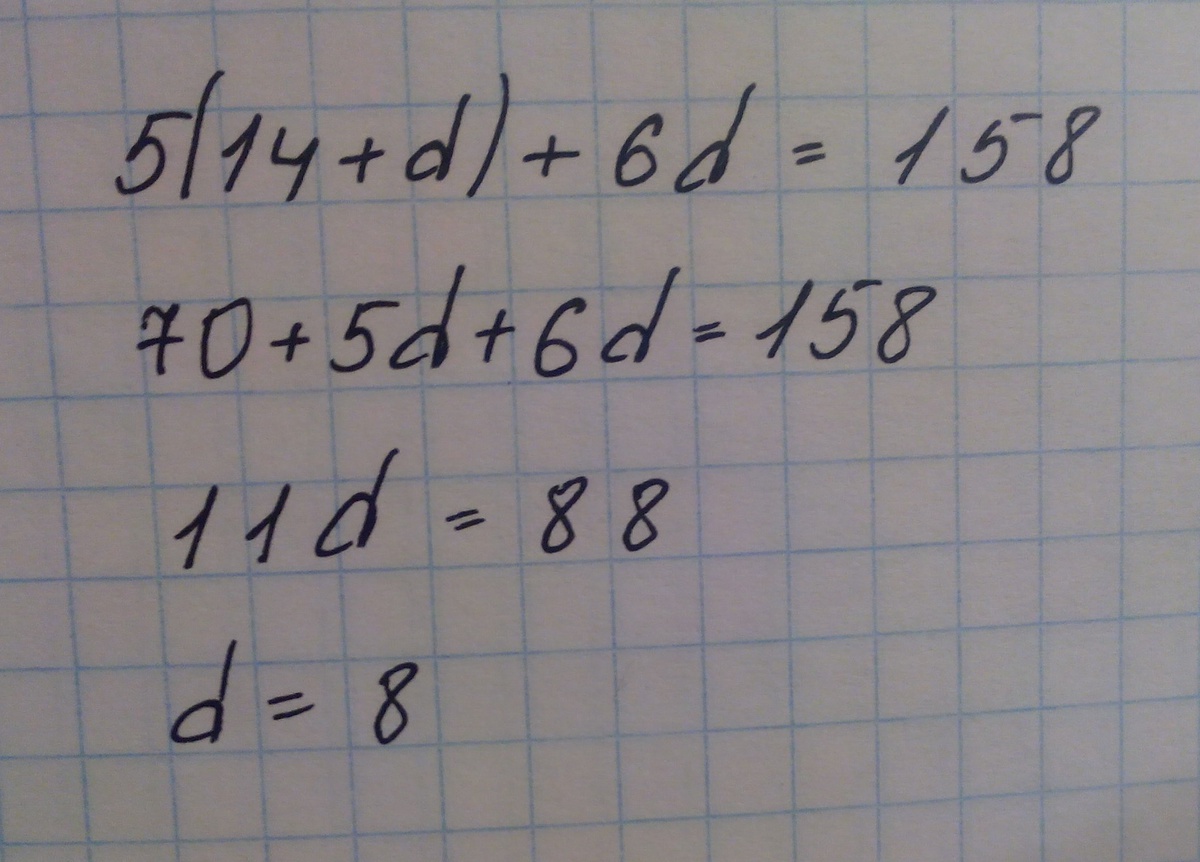 5(14+d)+6d = 158
70+5d+6d=158
11d = 88
d = 8